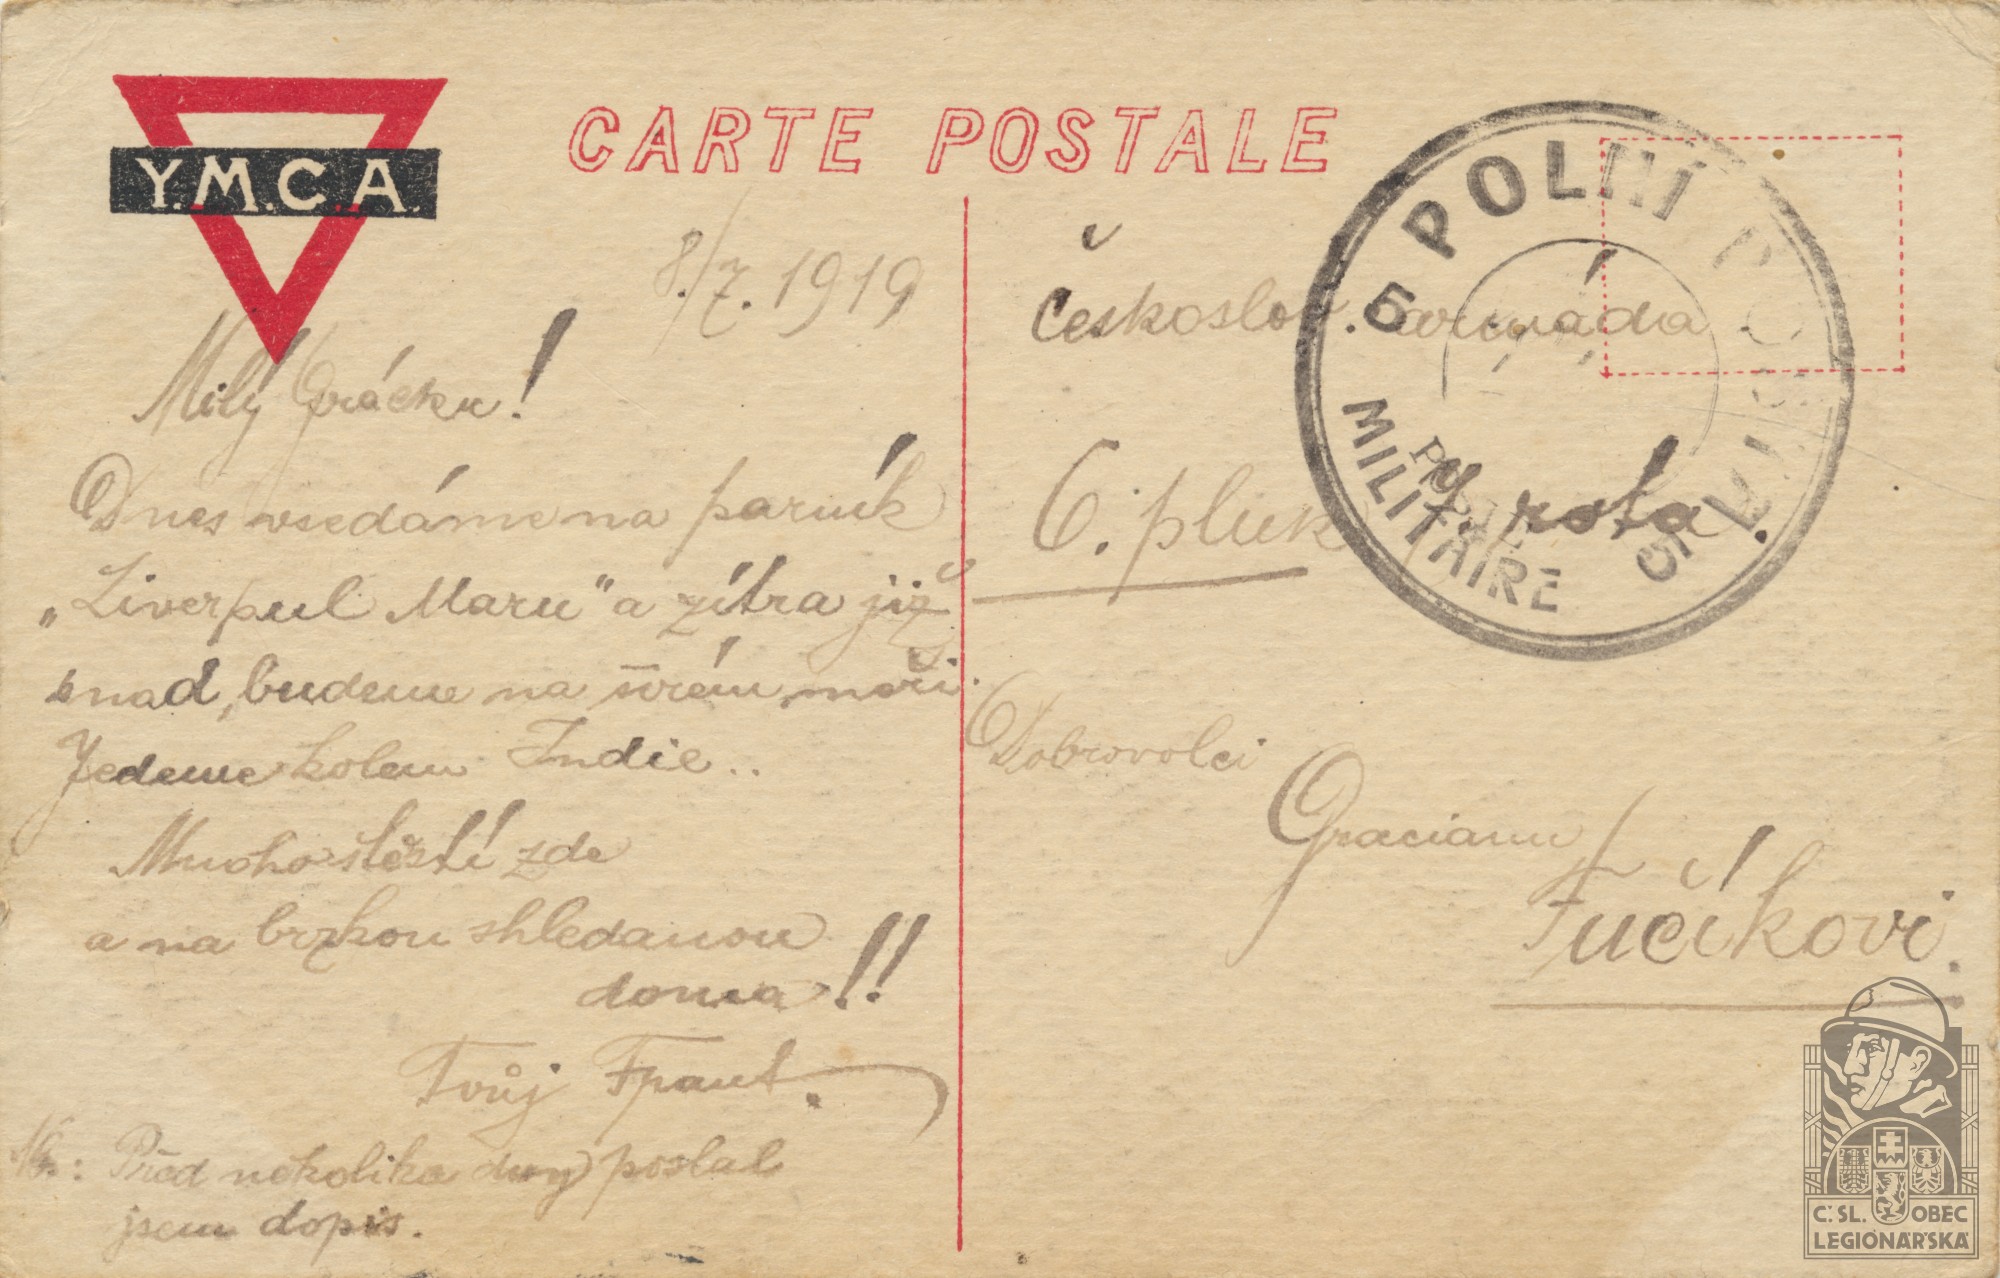 Y.M.C.A.
CARTE POSTALE
8./7. 1919
Milý Grácku!
Dnes vsedáme na parník
„Liverpul Maru" a zítra již
snad, budeme na širém moři.
Jedeme kolem Indie..
Mnoho štěstí zde
a na brzkou shledanou
doma!!
Tvůj Frant.
Před několika dny poslal
jsem dopis.
POLNÍ POŠTA
5
SERVICE
MILITAIRE
Českoslov. armáda
6. pluk
rota.
Dobrovolci
Gracianu
Fučíkovi.
Č.SL. OBEC
LEGIONÁŘSKÁ